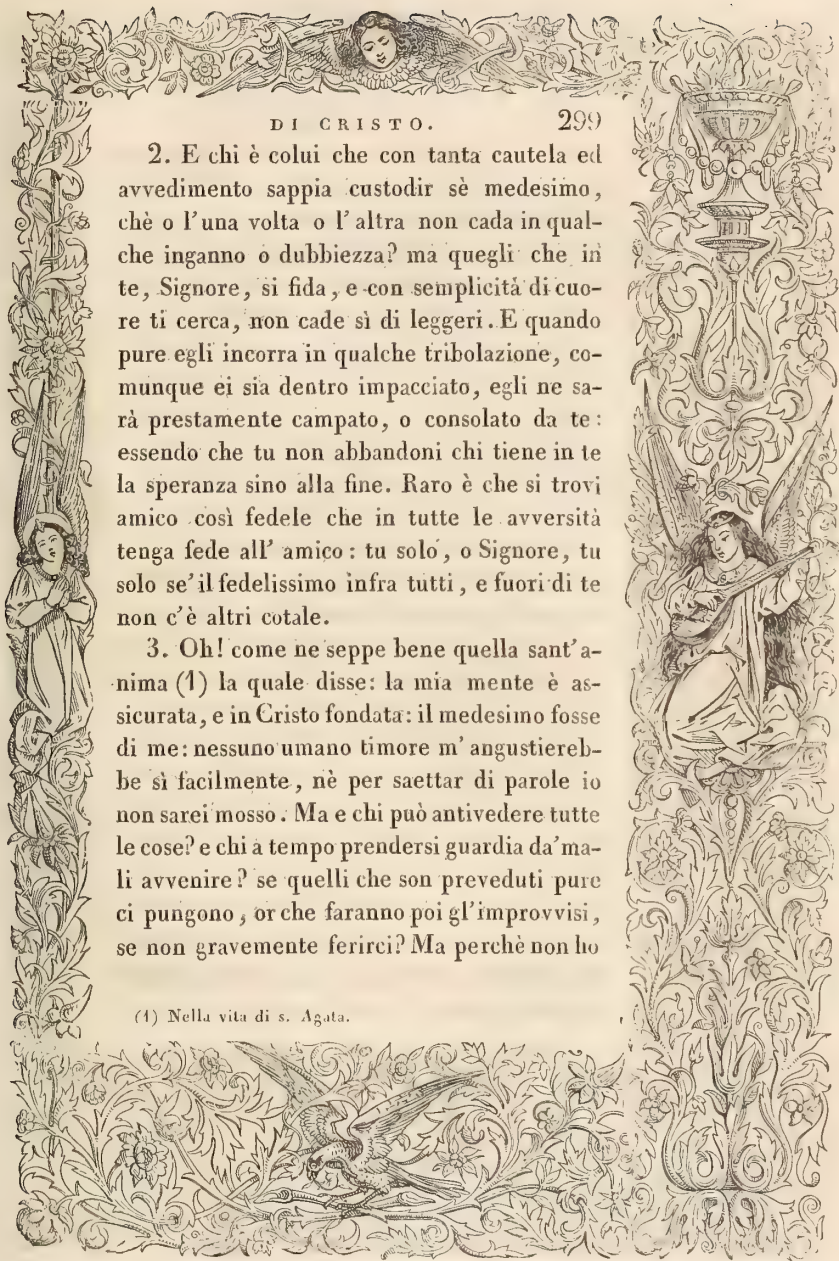 DI CRISTO. 299
2. E chi è colui che con tanta cautela ed
avvedimento sappia custodir sè medesimo,
chè o l'una volta o l'altra non cada in qual-
che inganno o dubbiezza? ma quegli che in
te, Signore, si fida, e con semplicità di cuo-
re ti cerca, non cade sì di leggeri. E quando
pure egli incorra in qualche tribolazione, co-
munque ei sia dentro impacciato, egli ne sa-
rà prestamente campato, o consolato da te:
essendo che tu non abbandoni chi tiene in te
la speranza sino alla fine. Raro è che si trovi
amico così fedele che in tutte le avversità
tenga fede all' amico: tu solo, o Signore, tu
solo se' il fedelissimo infra tutti, e fuori di te
non c'è altri cotale.
3. Oh! come ne seppe bene quella sant'a-
nima (1) la quale disse: la mia mente è as-
sicurata, e in Cristo fondata: il medesimo fosse
di me: nessuno umano timore m' angustiereb-
be sì facilmente, nè per saettar di parole io
non sarei mosso. Ma e chi può antivedere tutte
le cose? e chi a tempo prendersi guardia da' ma-
li avvenire? se quelli che son preveduti pure
ci pungono, or che faranno poi gl'improvvisi,
se non gravemente ferirci? Ma perchè non ho
(1) Nella vita di s. Agata.